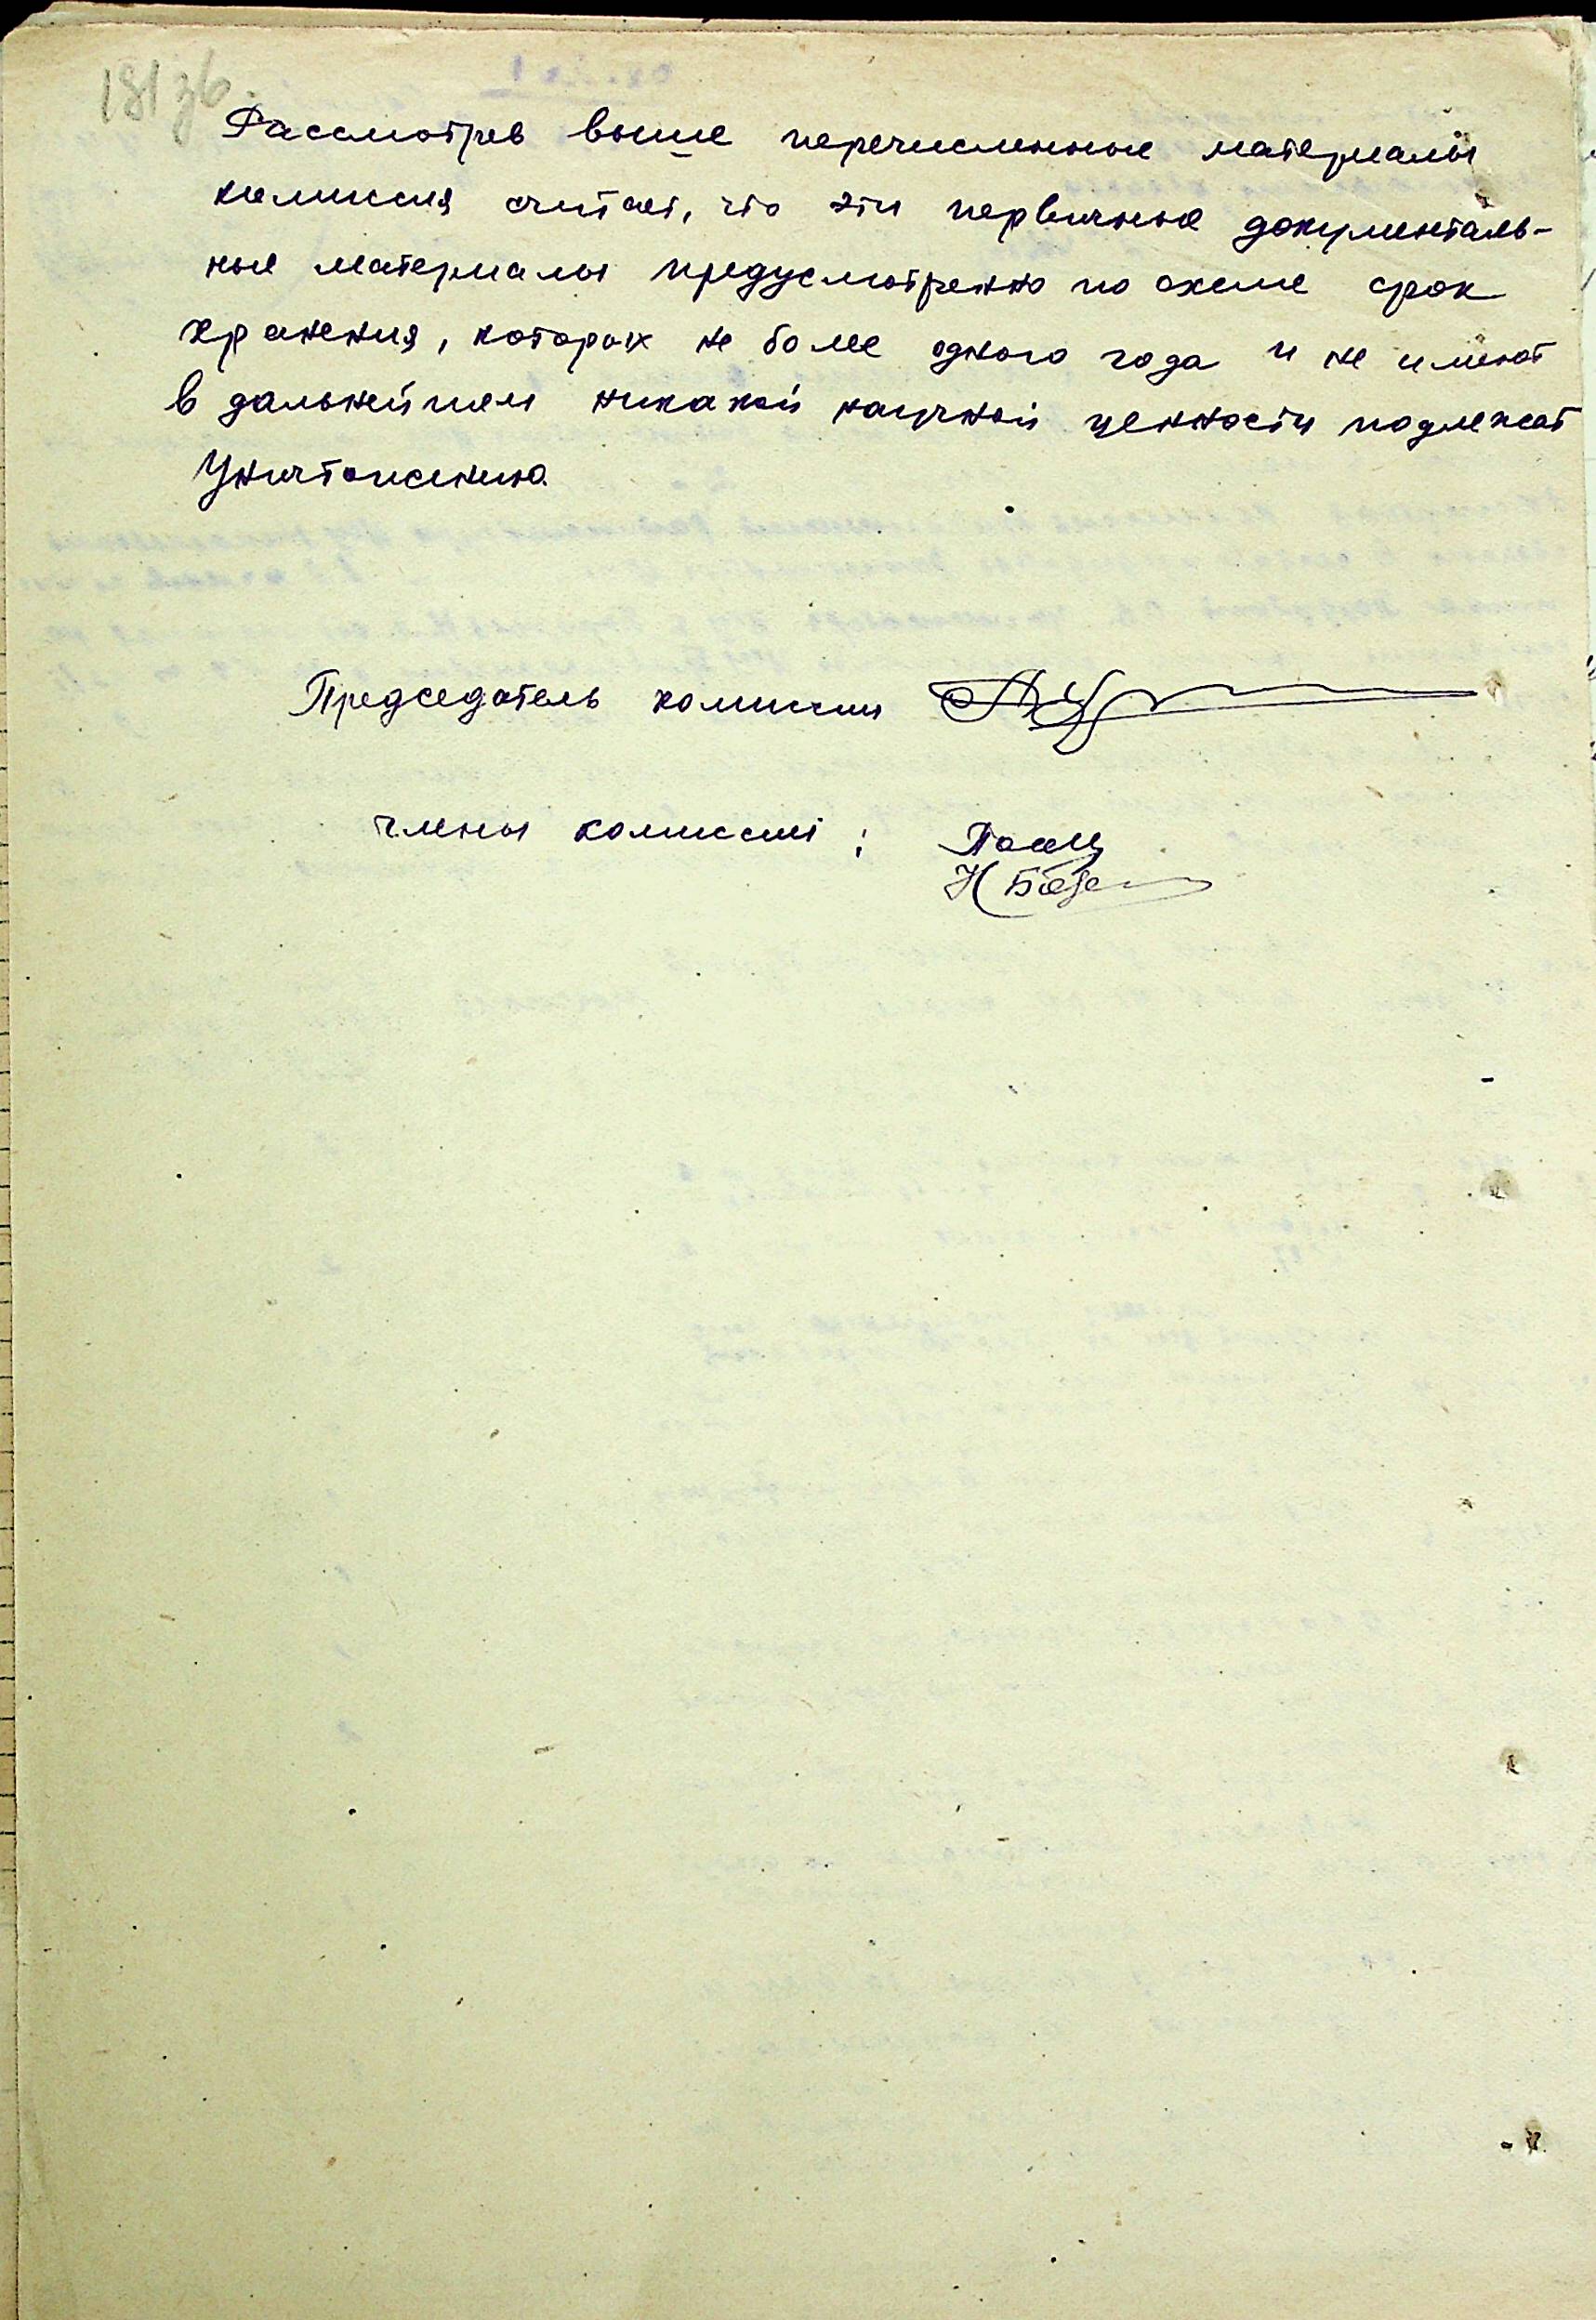 181 об.
Рассмотрев выше перечисленные материалы
комиссия считает, что эти первичные документаль-
ные материалы предусмотренно по схеме срок
хранения, которых не более одного года и не имеют
в дальнейшем никакой научной ценности подлежат
Уничтожению.
Председатель комиссии
члены комиссии: